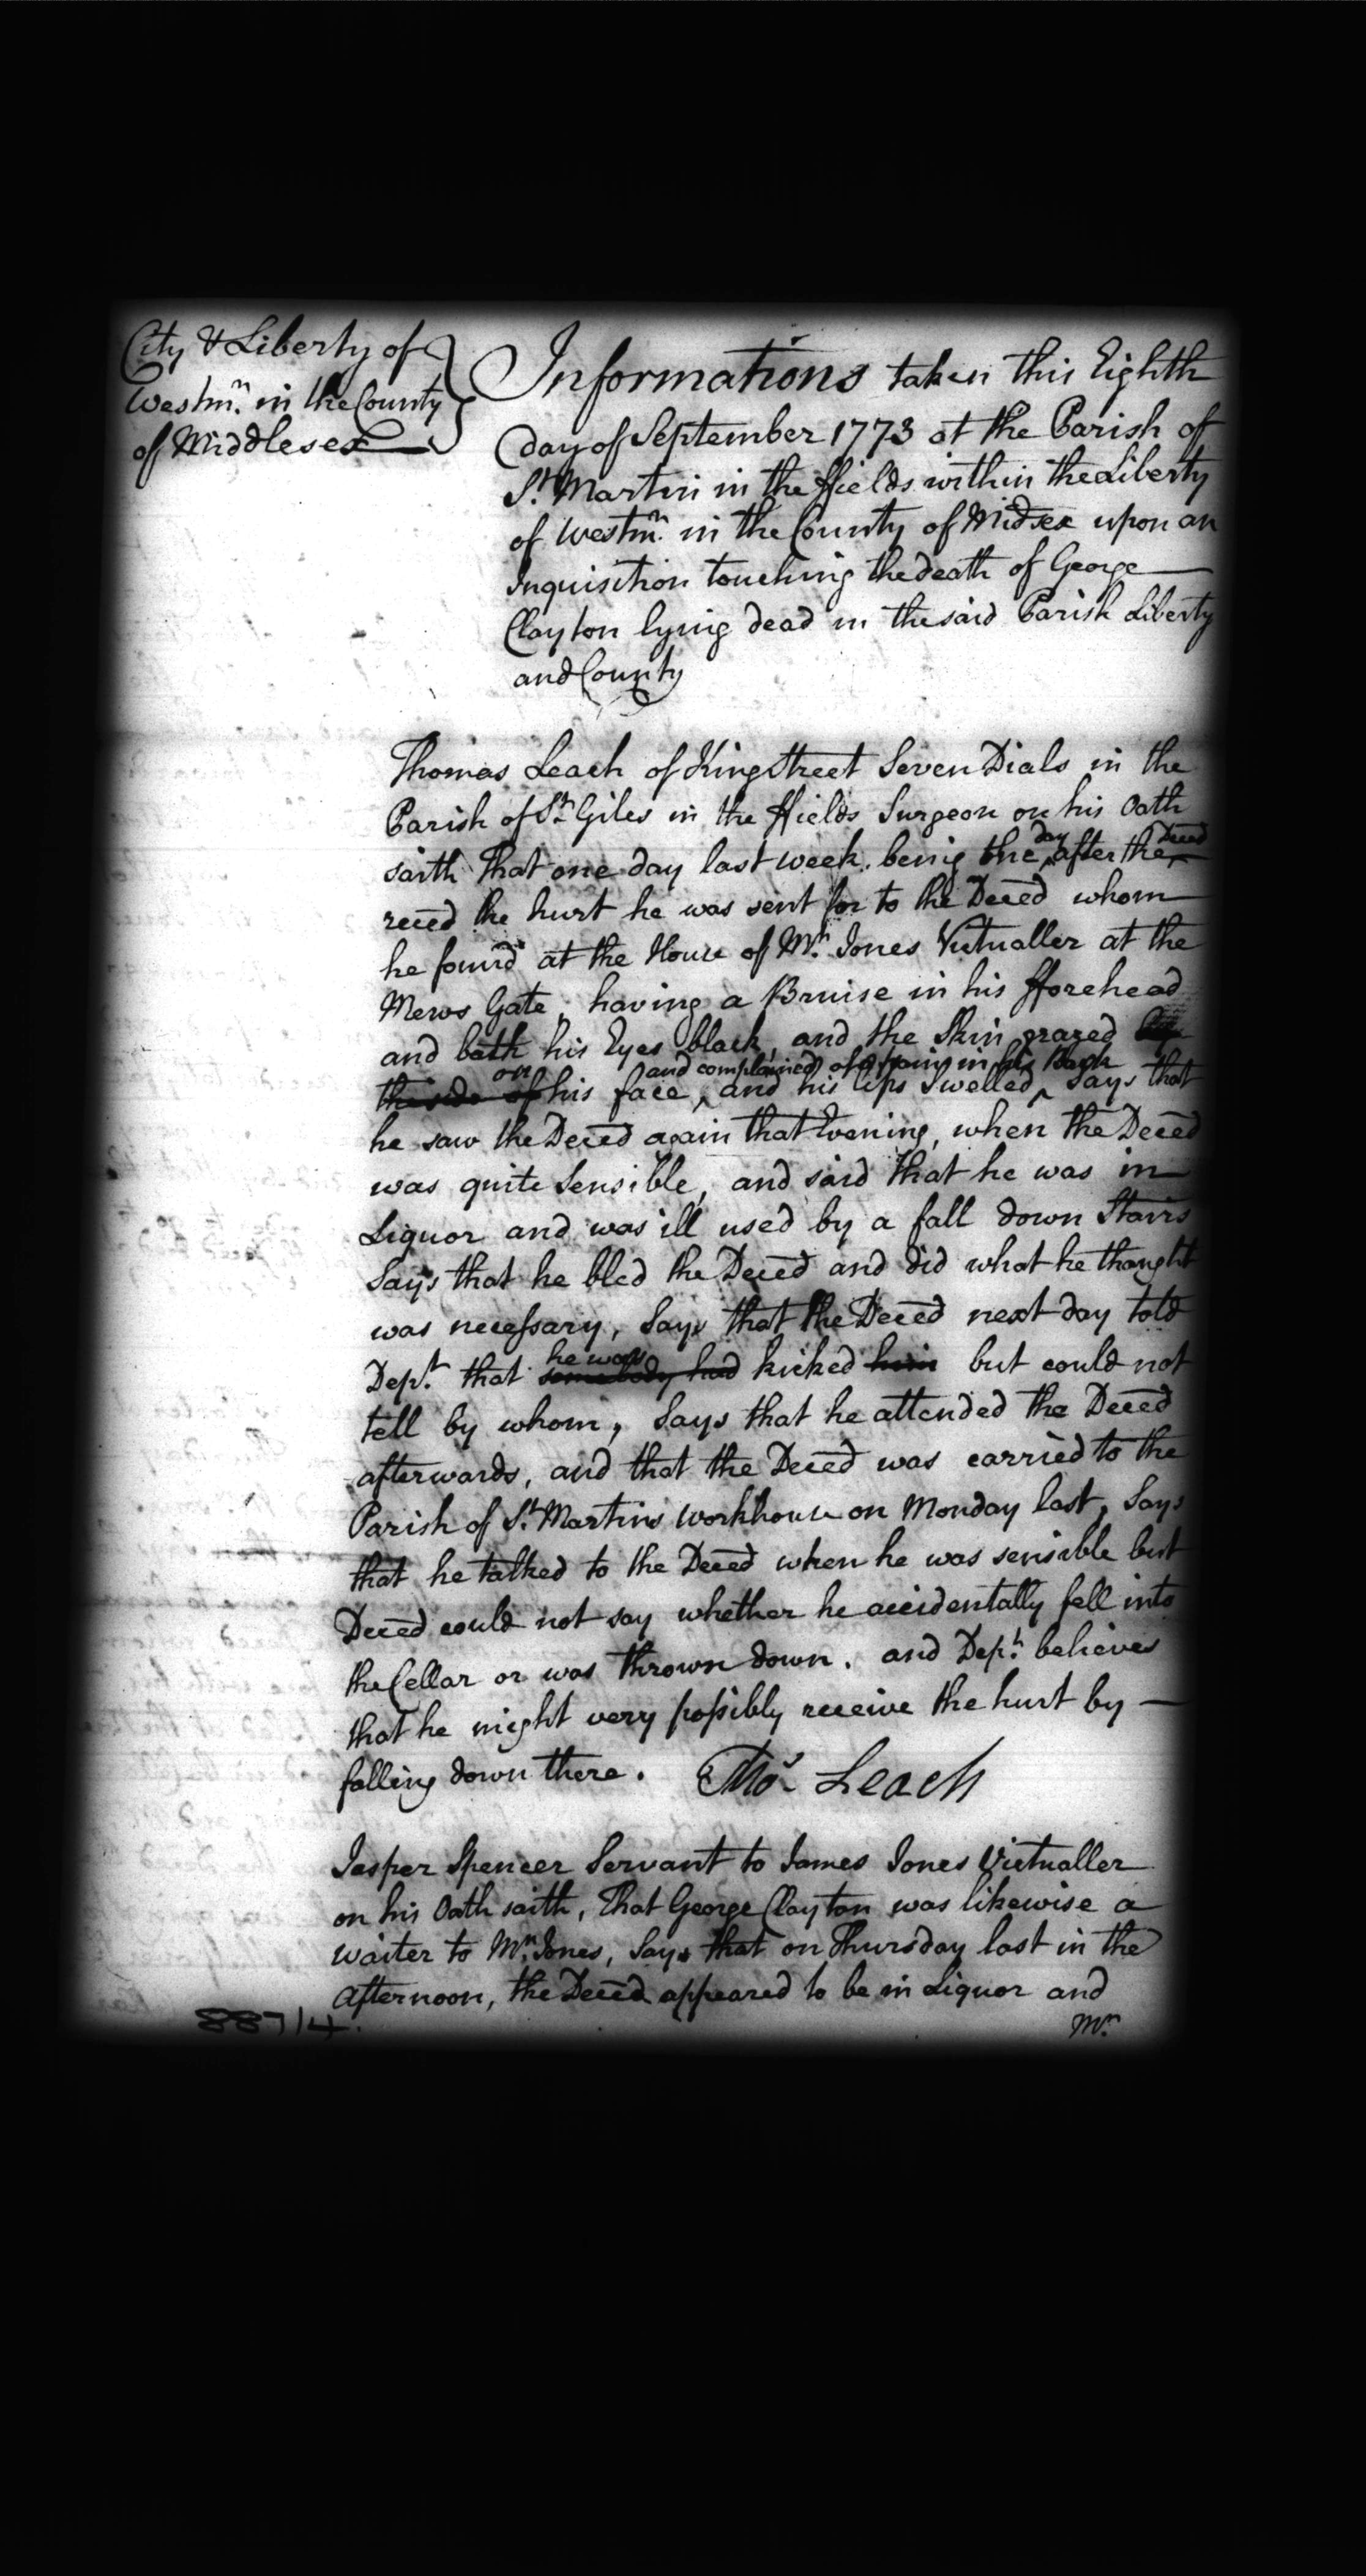 City & Liberty of
Westmr. in the County
of Middlesex
Informations taken this Eighth
day of September 1773 at the Parish of
St. Martin in the ffields within the Liberty
of Westmr. in the County of Midsex upon an
Inquisition touching the death of George
Clayton lying dead in the said Parish Liberty
and County
Thomas Leach of King Street Seven Dials in the
Parish of St. Giles in the ffields Surgeon on his Oath
saith That one day last week being the day after the Deced
reced the hurt he was sent for to the Deced whom
he found at the House of Mr. Jones Victualler at the
Mews Gate, having a Bruise in his fforehead
and both his Eyes black, and the Skin grazed
on and complained of a pain in his Back
the side of his face, and his lips Swelled, Says that
he saw the Deced again that Evening, when the Deced
was quite Sensible, and said that he was in
Liquor and was ill used by a fall down Stairs
Says that he bled the Deced and did what he thought
was necessary, Says that the Deced next day told
he was
Dept. that somebody had kicked him but could not
tell by whom, Says that he attended the Deced
afterwards, and that the Deced was carried to the
Parish of St. Martins Workhouse on Monday last, Says
that he talked to the Deced when he was sensible but
Deced could not say whether he accidentally fell into
the Cellar or was thrown down. and Dept. believes
that he might very possibly receive the hurt by
falling down there. Thos. Leach
Jasper Spencer Servant to James Jones Victualler
on his Oath saith, That George Clayton was likewise a
waiter to Mr. Jones, Says that on Thursday last in the
Afternoon, the Deced appeared to be in Liquor and
Mr.
887/4.